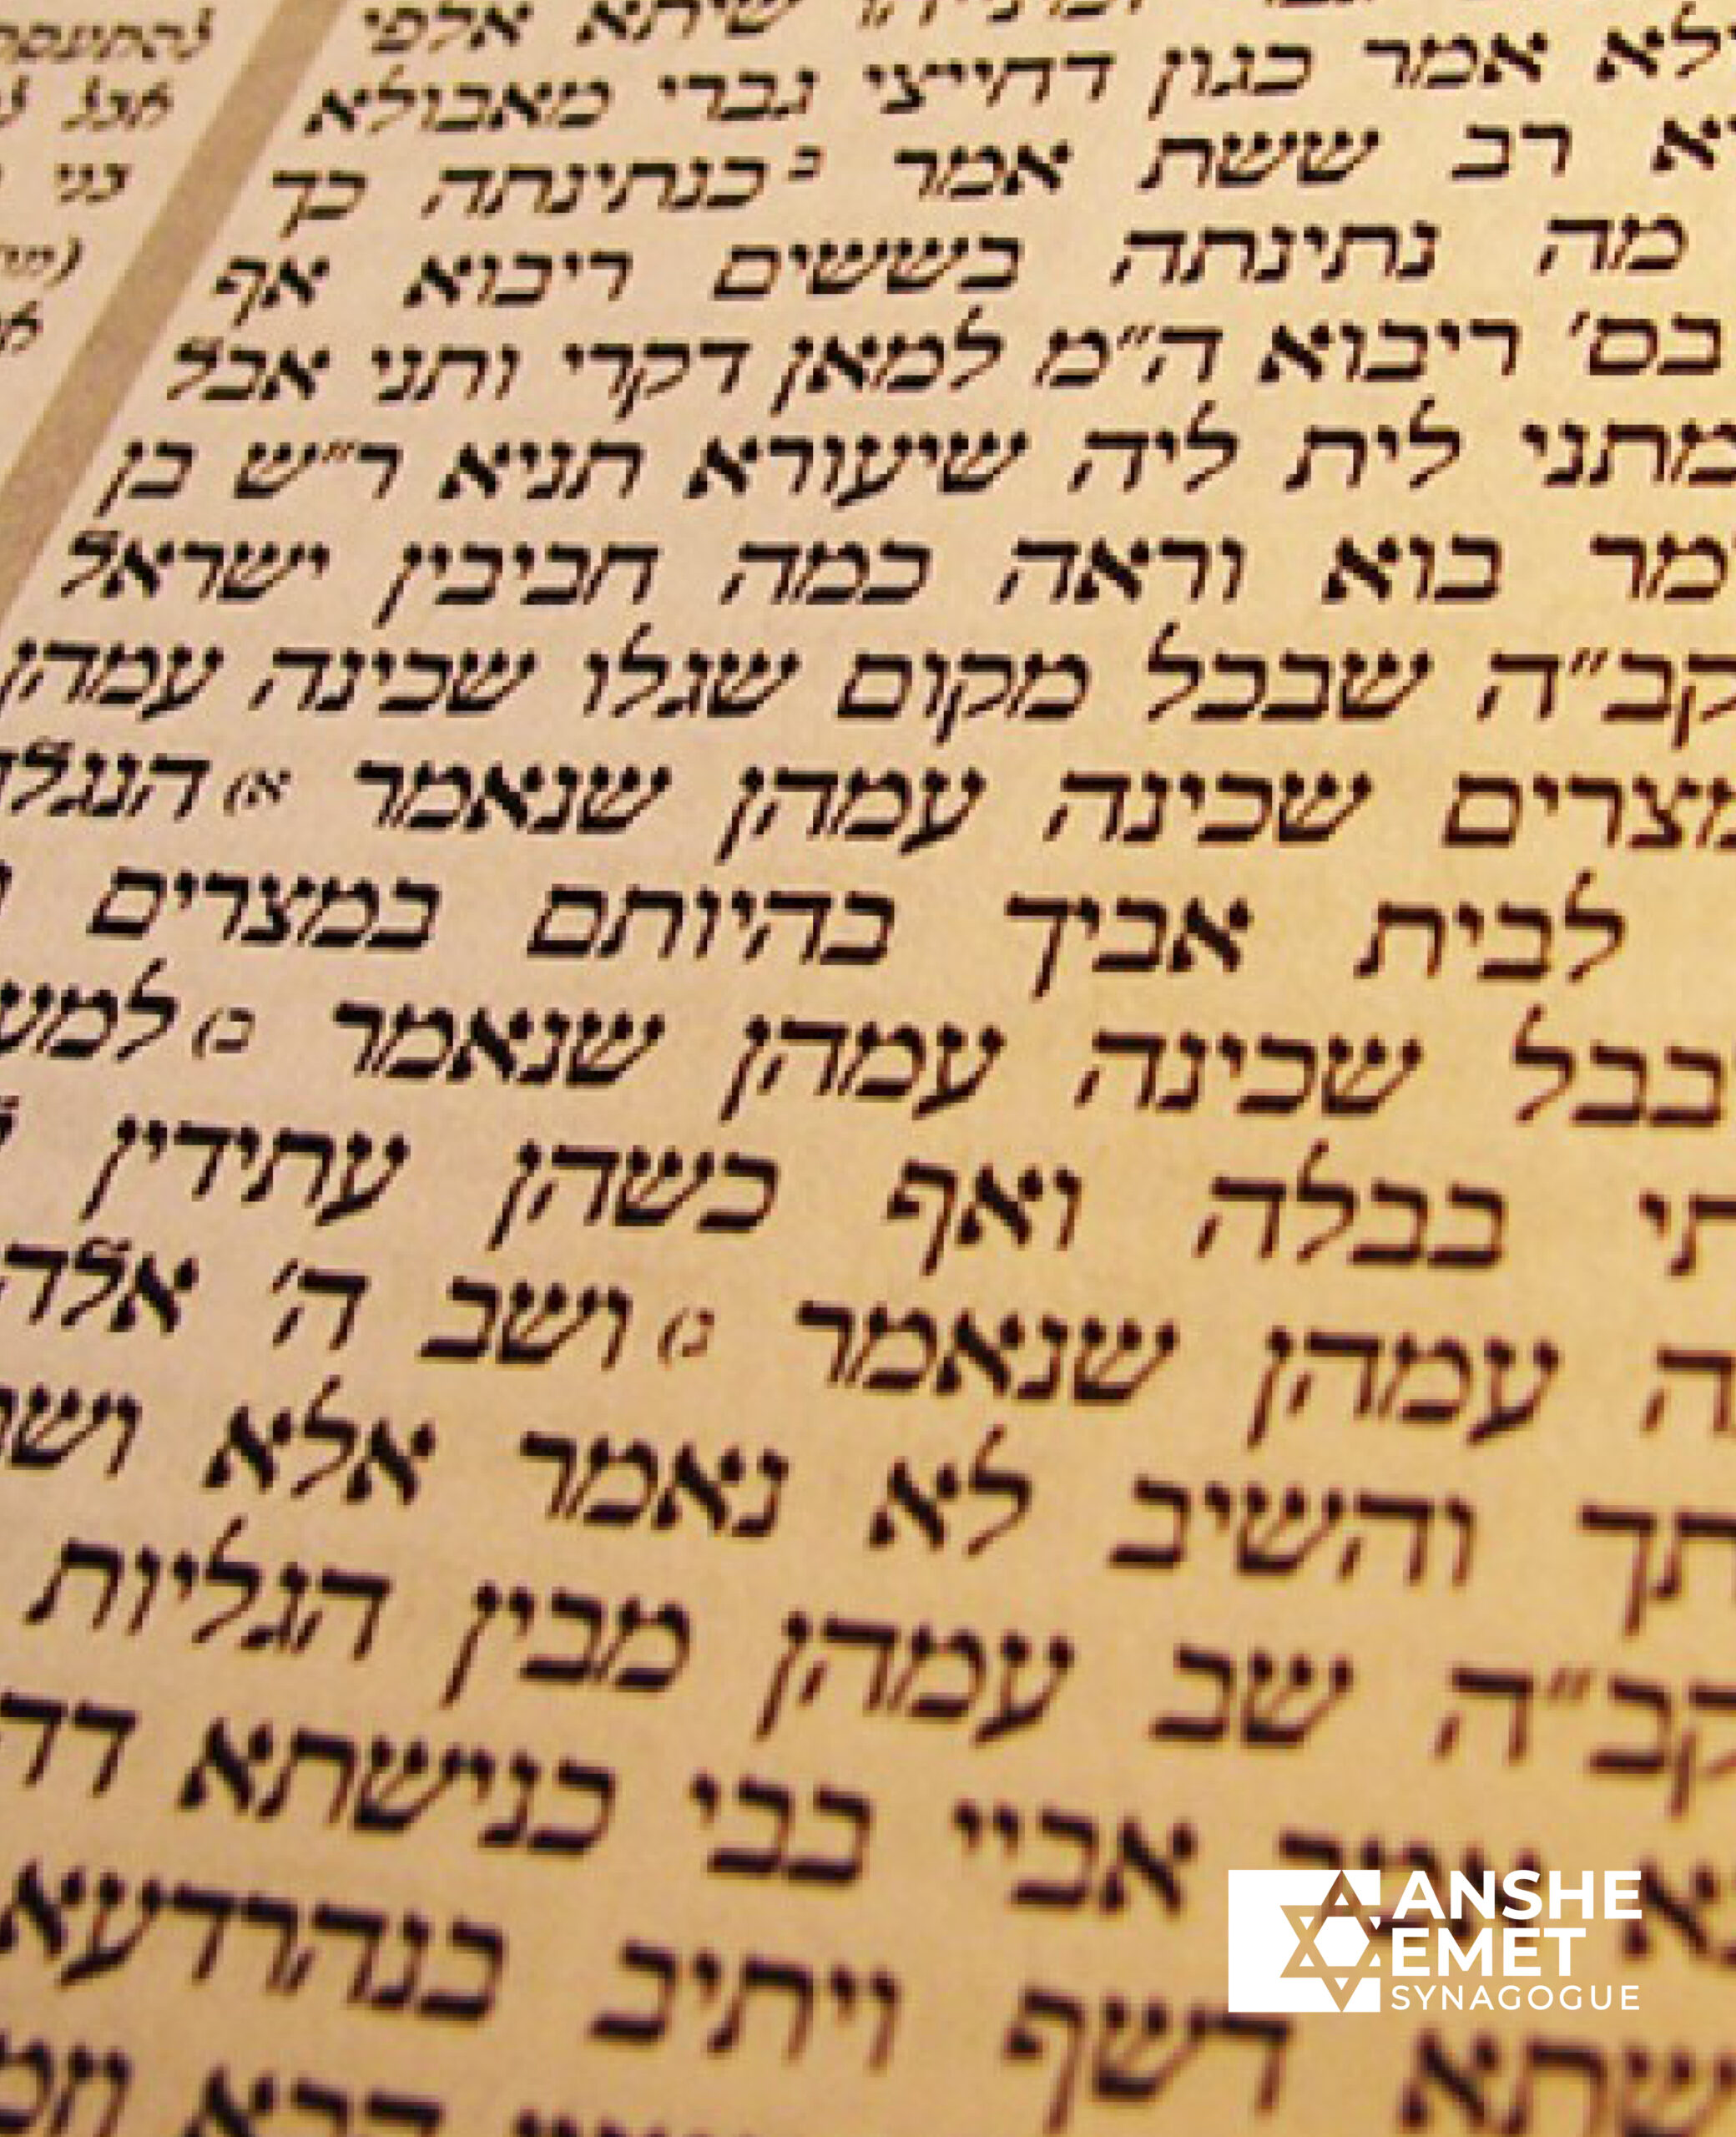 שיתא אלפי
אמר כגון דחייצי גברי מאבולא
רב ששת אמר ב כנתינתה כך
מה נתינתה בששים ריבוא אף
בס׳ ריבוא ה״מ למאן דקרי ותני אבל
מתני לית ליה שיעורא תניא ר״ש בן
בוא וראה כמה חביבין ישראל
קב״ה שבכל מקום שגלו שכינה עמהן
שכינה עמהן שנאמר א)
לבית אביך בהיותם במצרים
שכינה עמהן שנאמר ב)
בבלה ואף כשהן עתידין
עמהן שנאמר ג) ושב ה׳
והשיב לא נאמר אלא
קב״ה שב עמהן מבין הגליות
אביי בבי כנישתא
דשף ויתיב בנהרדעא
להתעסק
אבל
בני
ANSHE
EMET
SYNAGOGUE